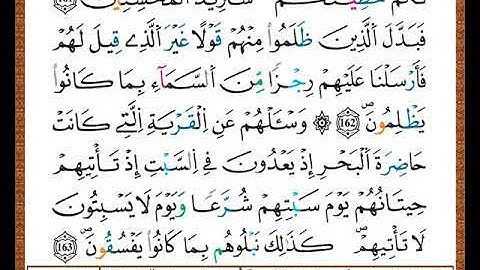 لَكُمْ خَطِيٓـَٰٔتِكُمْ ۚ سَنَزِيدُ ٱلْمُحْسِنِينَ ١٦١
فَبَدَّلَ ٱلَّذِينَ ظَلَمُوا۟ مِنْهُمْ قَوْلًا غَيْرَ ٱلَّذِى قِيلَ لَهُمْ
فَأَرْسَلْنَا عَلَيْهِمْ رِجْزًا مِّنَ ٱلسَّمَآءِ بِمَا كَانُوا۟
يَظْلِمُونَ ١٦٢ ۞ وَسْـَٔلْهُمْ عَنِ ٱلْقَرْيَةِ ٱلَّتِى كَانَتْ
حَاضِرَةَ ٱلْبَحْرِ إِذْ يَعْدُونَ فِى ٱلسَّبْتِ إِذْ تَأْتِيهِمْ
حِيتَانُهُمْ يَوْمَ سَبْتِهِمْ شُرَّعًا وَيَوْمَ لَا يَسْبِتُونَ
لَا تَأْتِيهِمْ ۚ كَذَٰلِكَ نَبْلُوهُم بِمَا كَانُوا۟ يَفْسُقُونَ ١٦٣